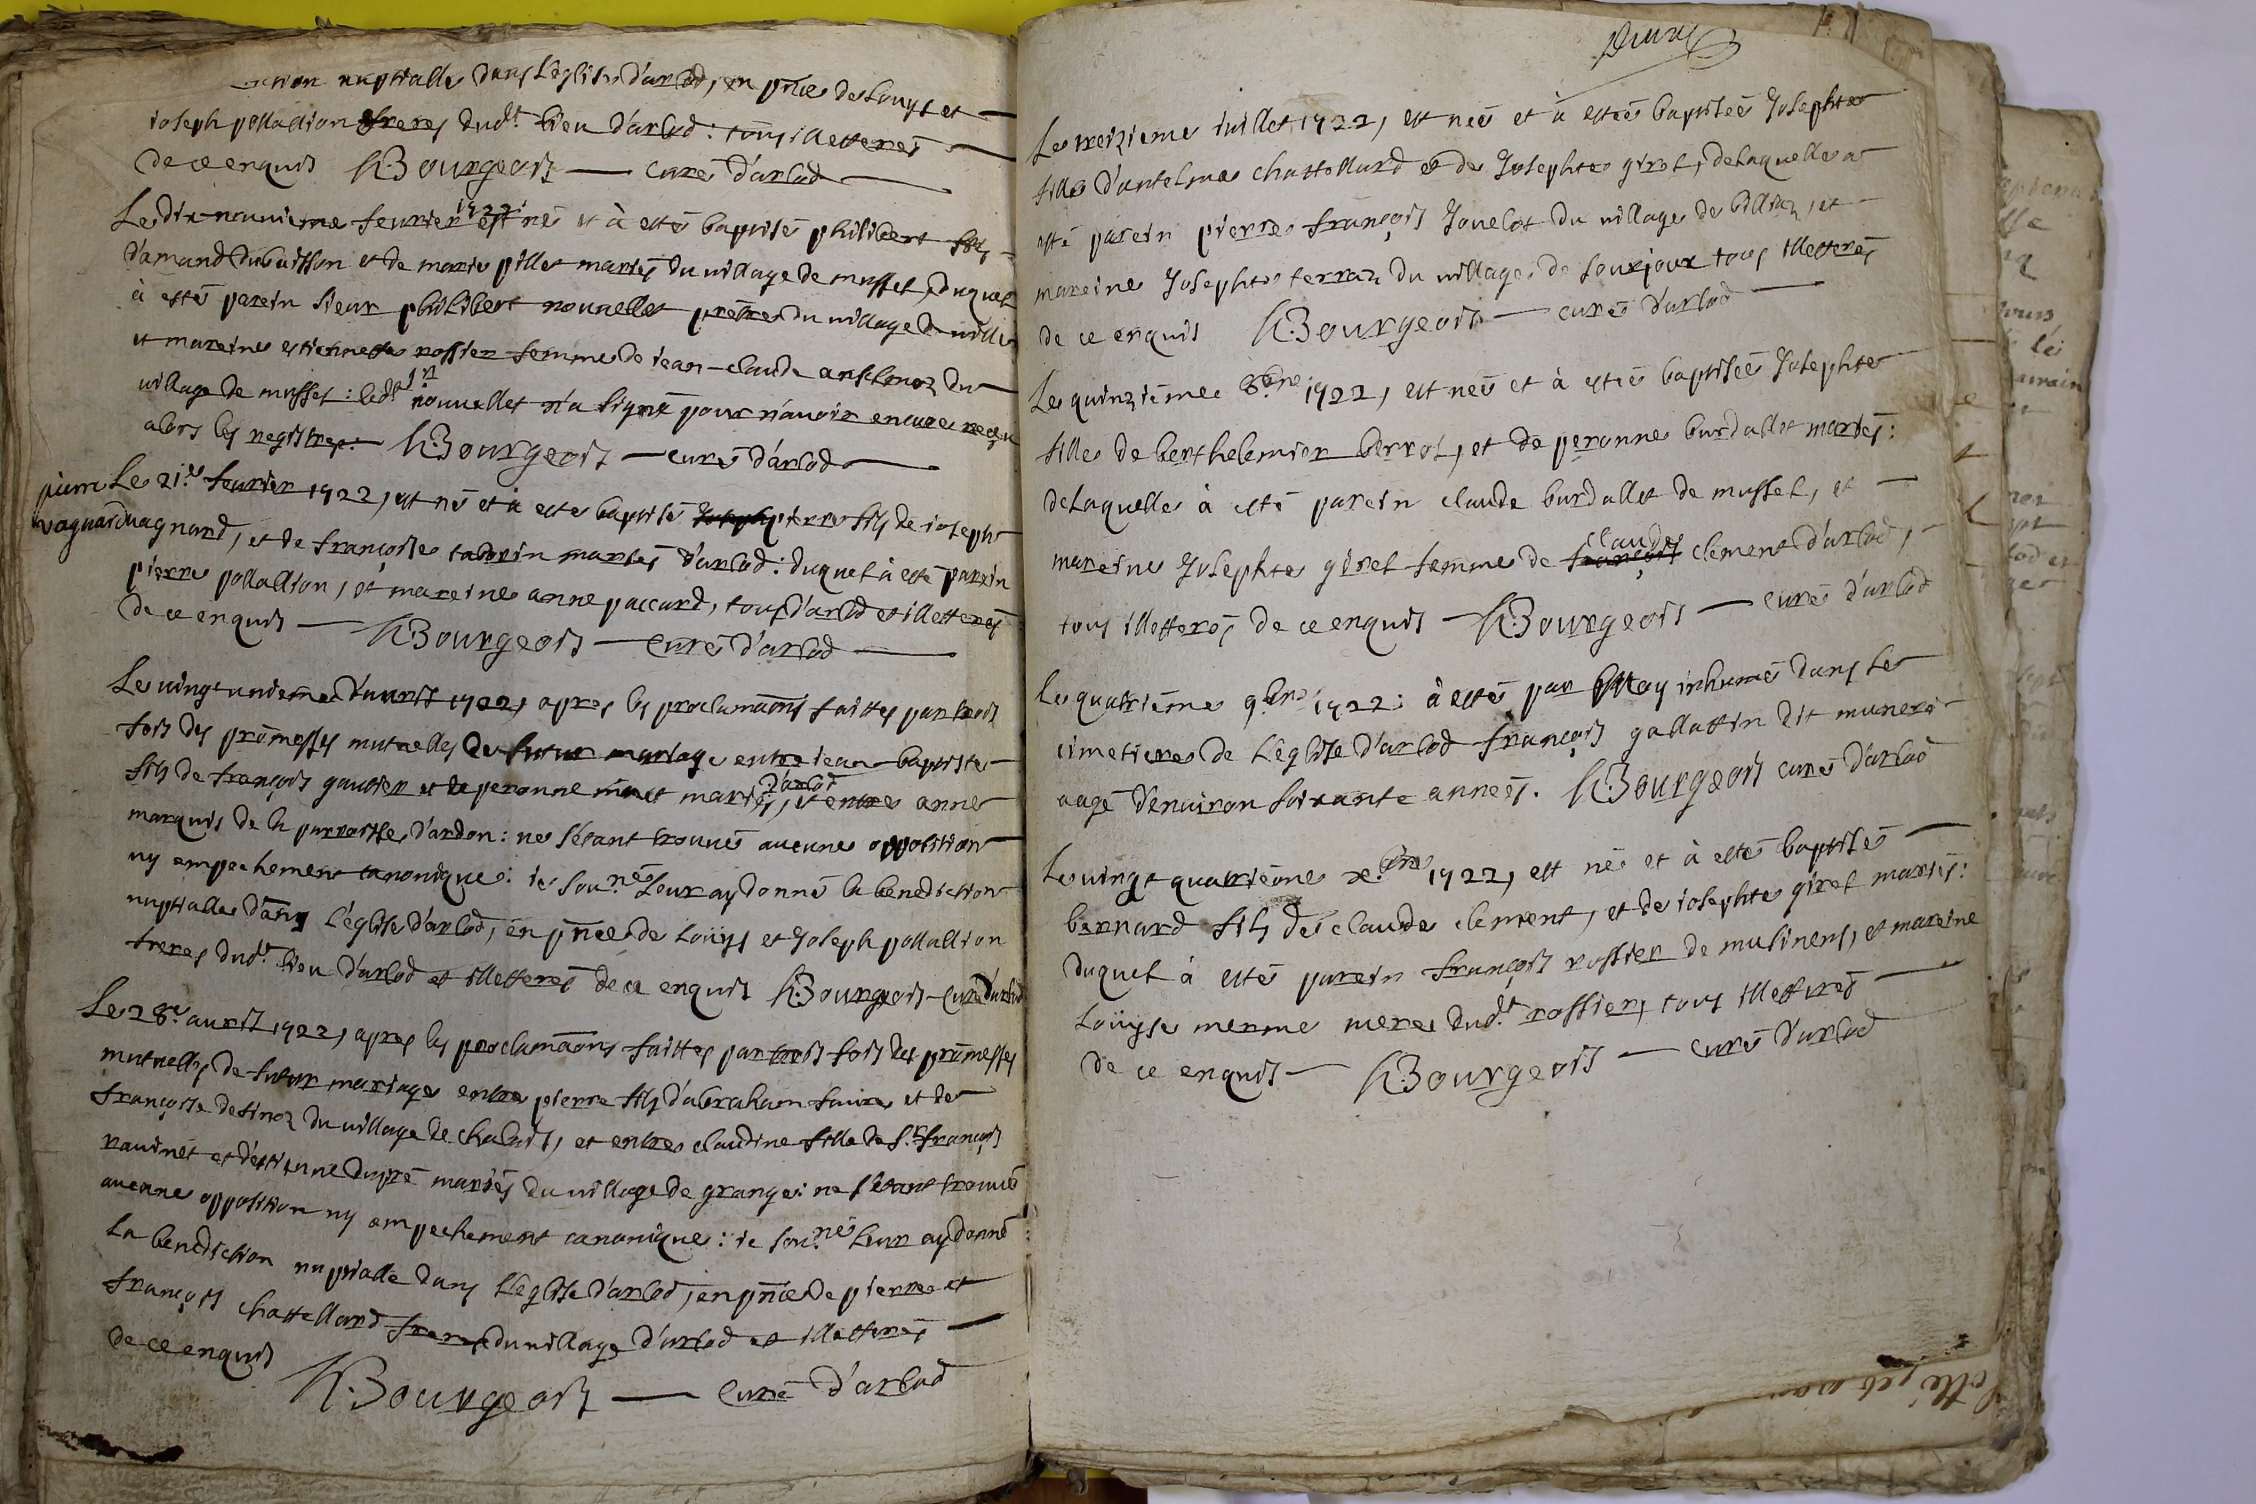 ction nuptialle dans L'eglise d'arlod, en pñce de Louys et
ioseph pollallion freres dud.t lieu d'arlod: tous illetterés
de ce enquis Bourgeois curé d'arlod
Le dix-nouvieme feurier 1722: est né et à esté baptisé philibert fils
d'amand dubuisson et de marie pillet mariés du village de mussel, duquel
à esté parein sieur philibert nouuellet prêtre du village de
et mareine estiennette rossier femme de iean-claude anselmoz du
village de mussel: led.t s.r nouuellet n'a signé pour n'auoir encore reçu
alors les registres. Bourgeois curé d'arlod
pierre
vagnard
Le 21.e feurier 1722, est né et à esté baptisé pierre fils de ioseph
vagnard, et de françoise tavorin mariés d'arlod: duquel à esté parein
pierre pollallion, et mareine anne paccard, tous d'arlod et illetterés
de ce enquis Bourgeois curé d'arlod
Le vingt unieme d'auril 1722, apres les proclamaons faittes par trois
fois des promesses mutuelles de futur mariage entre iean-baptiste
fils de françois gautier et de peronne mariés d'arlod, et entre anne
marquis de la parroisse d'ardon: ne s'étant trouué aucune opposition
ny empechement canonique: ie sou.né Leur ay donné la benediction
nuptialle dans L'église d'arlod, en pñce de Loüys et Joseph pollallion
freres dud.t lieu d'arlod et illetterés de ce enquis Bourgeois curé d'arlod
Le 28.e auril 1722, apres les proclamaons faittes par trois fois des promesses
mutuelles de futur mariage entre pierre fils d'abraham faure et de
françoise definoz du village de chalais, et entre claudine fille de s.r françois
rauinet et d'estienne dupré mariés du village de grange: ne s'étant trouué
aucune opposition ny empechement canonique: ie sou.né Leur ay donné
La benediction nuptialle dans L'eglise d'arlod, en pñce de pierre et
françois chattellard freres du village d'arlod et illetterés
de ce enquis Bourgeois curé d'arlod
Le treizieme iuillet 1722, est neé et à esteé baptiseé Josephte
fille d'antelme chattellard et de Josephte girel, de Laquelle a
esté parein pierre françois Jouelot du village de billiaz, et
mareine Josephte terraz du village de sourjoux tous illetterés
de ce enquis Bourgeois curé d'arlod
Le quinziéme 8.bre 1722, est neé et à esteé baptiseé Josephte
fille de berthelemier berrot, et de peronne burdallet mariés:
de Laquelle à esté parein claude burdallet de mussel, et
mareine Josephte girel femme de françois claude clement d'arlod,
tous illetterés de ce enquis Bourgeois curé d'arlod
Le quatriéme 9.bre 1722: à esté par moy inhumé dans le
cimetiere de L'eglise d'arlod françois gallattin dit
aagé d'enuiron soixante années. Bourgeois curé d'arlod
Le vingt quatriéme x.bre 1722, est né et à esté baptisé
bernard fils de claude clement, et de iosephte girel mariés:
duquel à esté parein françois rossier de musinens, et mareine
Loüyse merme mere dud.t rossier, tous illetterés
de ce enquis Bourgeois curé d'arlod